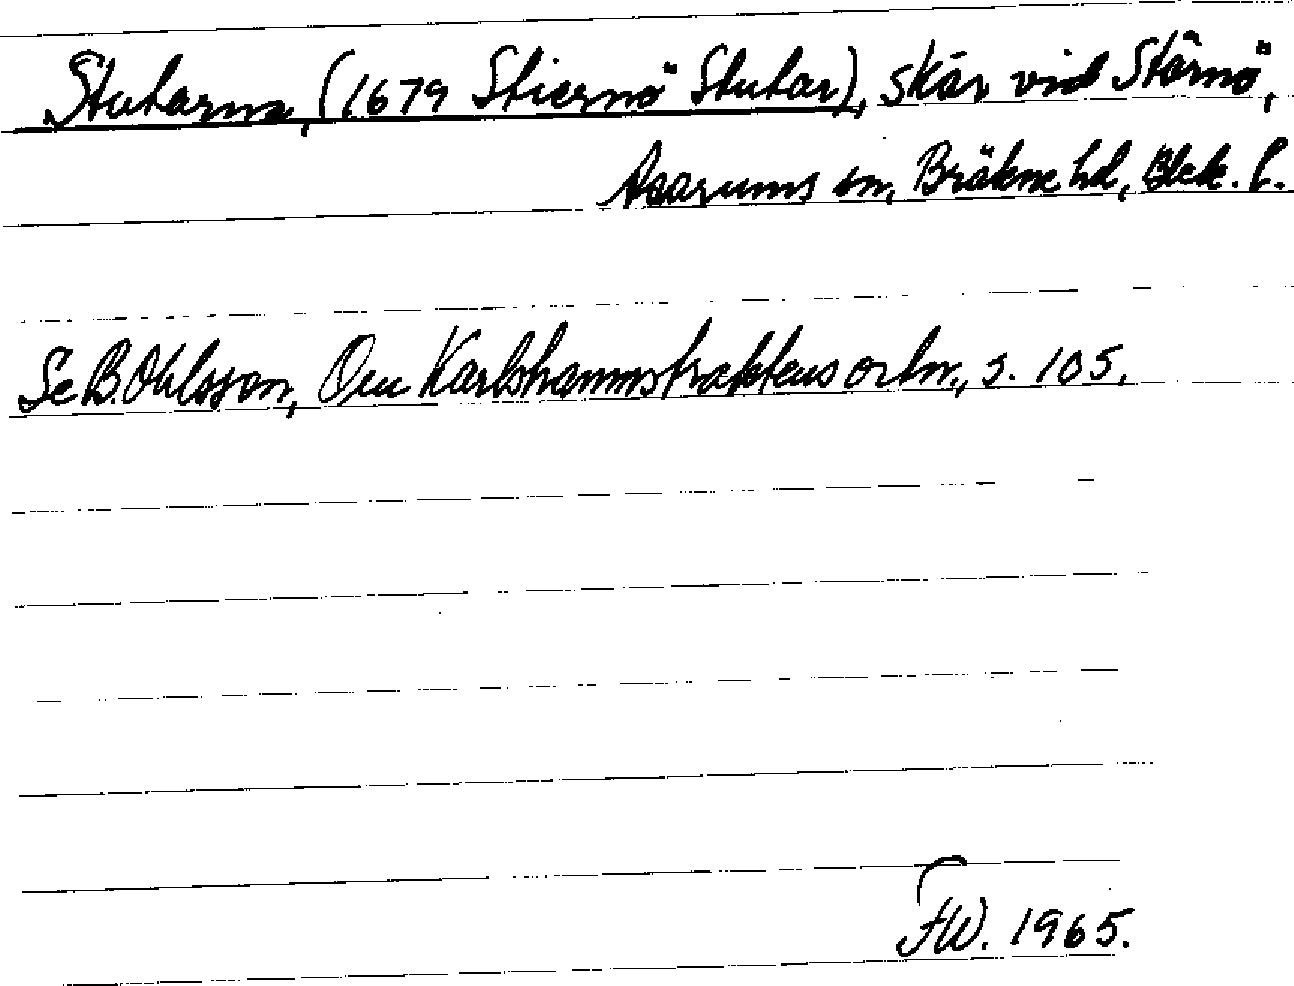 Stutarna, (1679 Stiernö Stutar), skär vid Stärnö,
Asarums sn, Bräkne hd, Blek. l.
Se B. Ohlsson, Om Karlshamnstraktens ortn., s. 105.
FW. 1965.